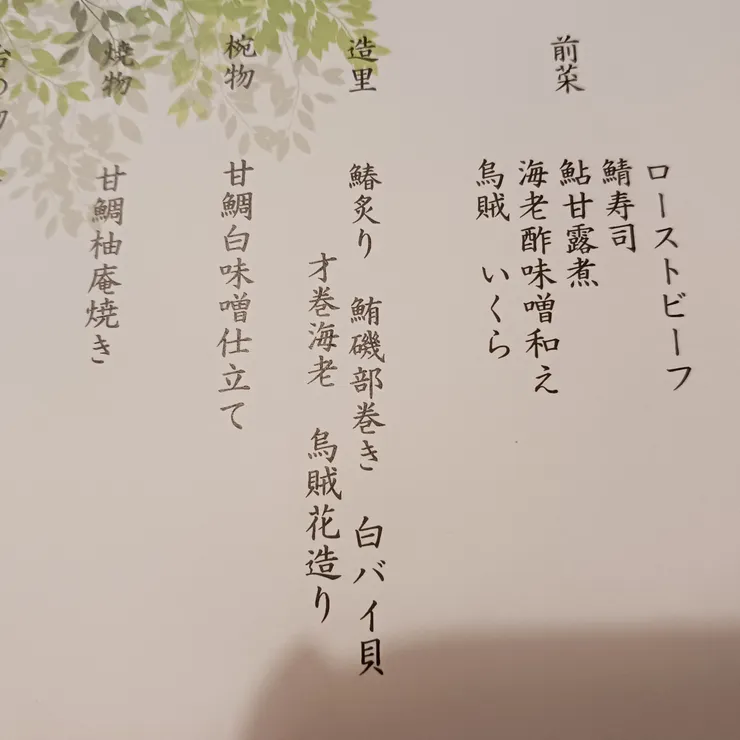 前菜
ローストビーフ
鯖寿司
鮎甘露煮
海老酢味噌和え
烏賊 いくら
造里
鰆炙り 鮪磯部巻き 白バイ貝
才巻海老 烏賊花造り
椀物
甘鯛白味噌仕立て
焼物
甘鯛柚庵焼き